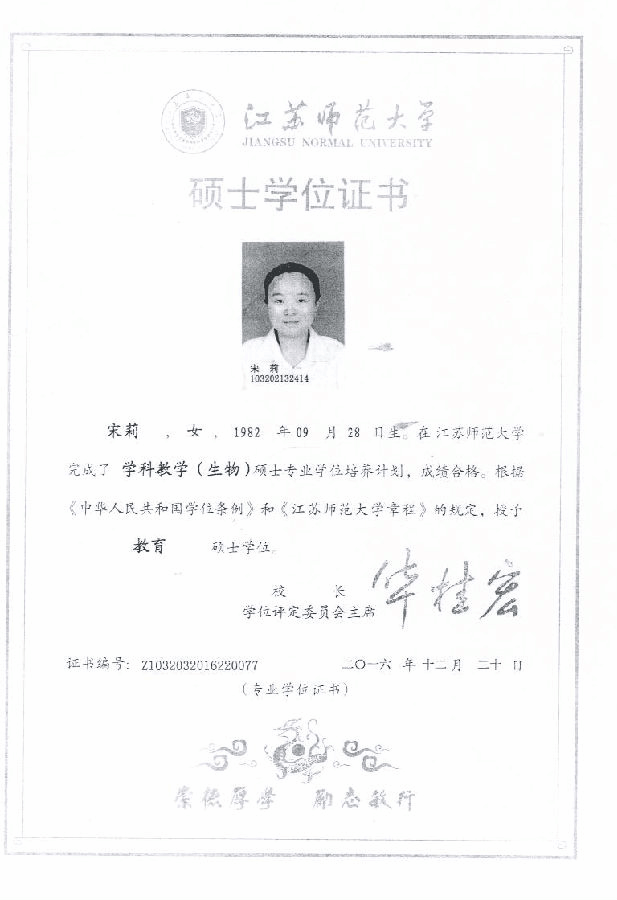 江苏师范大学
JIANGSU NORMAL UNIVERSITY
硕士学位证书
宋 莉
103202132414
宋莉 , 女 , 1982 年 09 月 28 日生。在江苏师范大学
完成了 学科教学(生物)硕士专业学位培养计划,成绩合格。根据
《中华人民共和国学位条例》和《江苏师范大学章程》的规定,授予
教育 硕士学位。
校 长
学位评定委员会主席
华桂宏
证书编号: Z1032032016220077 二〇一六 年 十二月 二十 日
(专业学位证书)
崇德厚学 励志敏行